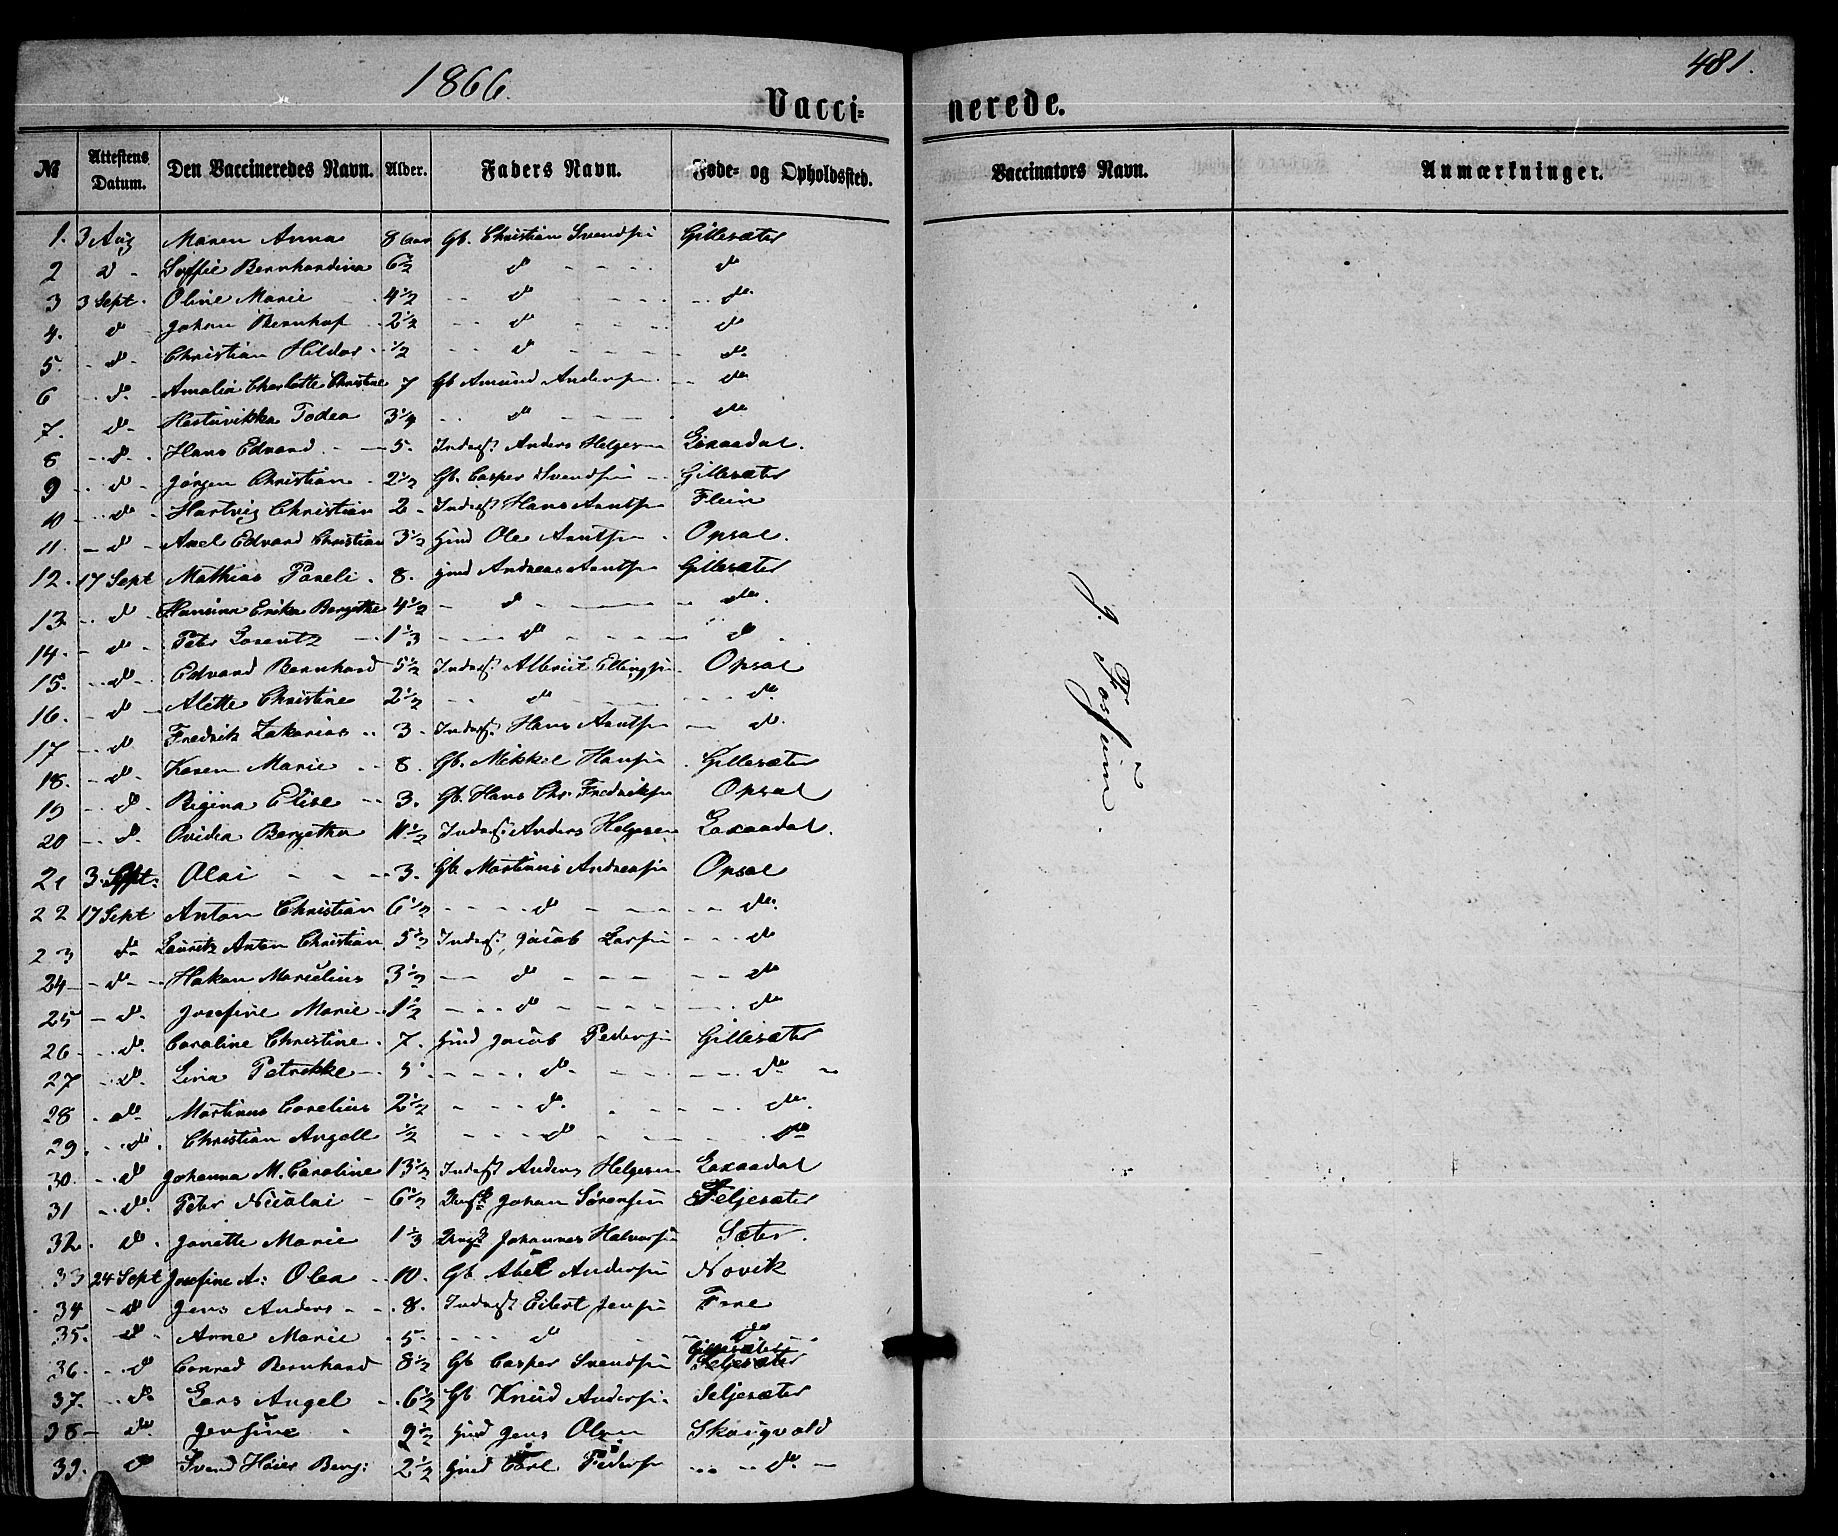 1866.
481.
Vacci= nerede.
№ Attestens Datum. Den Vaccineredes Navn. Alder. Faders Navn. Føde- og Opholdssted. Vaccinators Navn. Anmærkninger.
1. 3 Aug Maren Anna 8 Aar Gb. Christian Svendsen Gillesæter
2 d - Soffie Bernhardina 6½ d - - - - do
3 3 Sept. Oline Marie 4½ - - do - - - - do.
4. do Johan Bernhof 2½ - - do - - - - do
5. - do - Christian Hildor - ½ - - d - - - - - do
6 - - do - Amalia Charlotte Christine 7 Gb Amund Andersen - - do
7. - do - Hartvikka Todea 3¼ - - do - - - do
8 - - do - Hans Edvard - 5. Inderst Anders Helgesen Laxaadal
9 - - do Jørgen Christian - 2½ Gb. Casper Svendsen - - Gillesæter
10 - - do - Hartvig Christian 2 - Inderst Hans Arntsen Flein
11. - do - Axel Edvard Christian 3½ Hmd Ole Arntsen - Opsal.
12. 17 Sept Mathias Pareli. 8. Hmd Andreas Arntsen Gillesæter
13 - - do Hansina Erika Bergithe 4½ - do - - - - do.
14. - do - Peter Lorentz - - 1⅓ - - - do - - - - do
15. - - do - Edvard Bernhard 5½ Inderst. Albrigt Ellingsen Opsal
16. - do - Alette Christine 2½ - - do - - - - do.
17 - do Fredrik Zakarias - - 3. Inderst. Hans Arntsen - - do.
18. - do - Karen Marie - - 8. Gb. Mikkel Hansen Gillesæter
19 - - do. Regina Elise - - 3. Gb. Hans Chr. Fredriksen Opsal
20 - - do. Ovidia Bergetha 11½ Inderst. Anders Helgesen Laxaadal.
21 3. Sept: Olai - - - 3. Gb. Martinus Andreasen Opsal
22 17 Sept Anton Christian 6½ - - - do - - - - - do.
23 do Lauritz Anton Christian 5½ Inderst. Jacob Larsen - - - do
24 - - do - - Hakan Marelius 3½ - - do - - - - - do
25 - do - Josefine Marie - 1½ - - - do - - - - - do
26 - - do. Caroline Christine - 7. Hmd Jacob Pedersen Gillesæter
27 - - do. Lina Petrikke - 5. - - - - do - - - - do -
28 - do - Martinus Corelius 2½ - - - do. - - - do.
29. - - do. Christian Angell ½ - - - do - - - - do
30. - do Johanna M. Caroline 13½ Inderst Anders Helgesen Laxaadal
31 - - do. Peter Nicolai - 6½ Johan Sørensen Seljesæter
32. - do - Janette Marie 1⅓ Johannes Halvorsen Sæter.
33 24 Sept Josefine A: Olea - - 10. Gb. Abel Andersen Novik
34 - do Jens Anders - - - 8. Inderst Eilert Jensen Fore
35. - do - Anne Marie - 5 - - - do - - do
36. - - do Conrad Bernhard 8½ Gb Casper Svendsen Gillesæter Seljesæter
37. - - do Lars Angel - - 6½ Gb Knud Andersen. Seljesæter
38 - do. Jensine - 9½ Hmd Jens Olsen Skaugvold
39. do Svend Høier Berg: 2½ Hmd Carl Pedersen - - - do -
J. Fosheim.